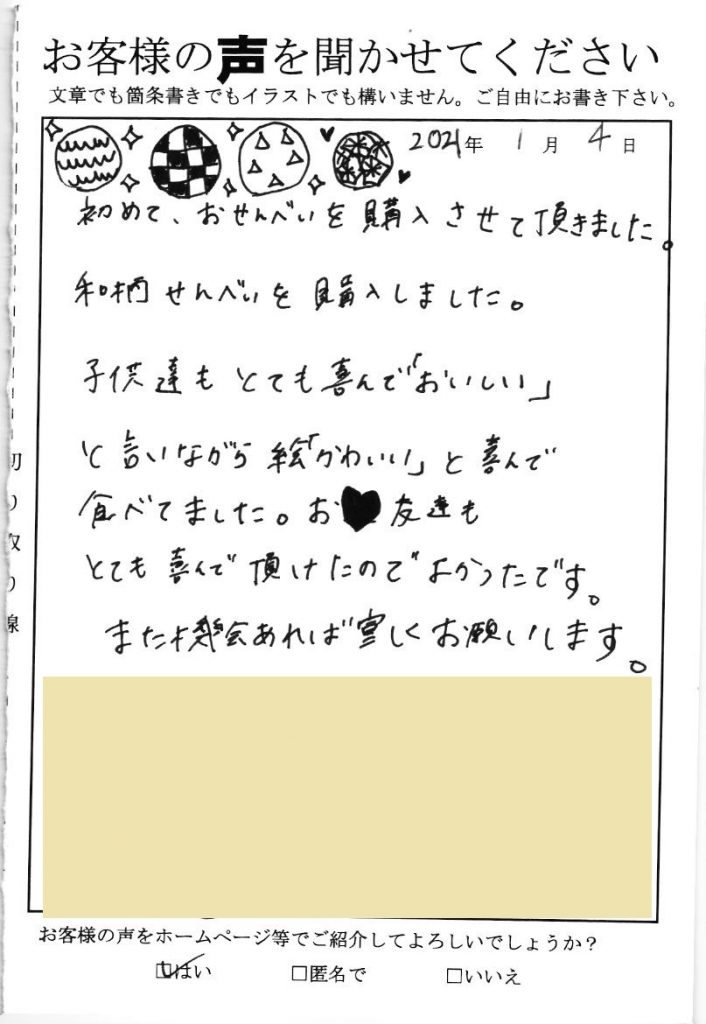 お客様の声を聞かせてください
文章でも箇条書きでもイラストでも構いません。ご自由にお書き下さい。
2021年 1月 4日
初めて、おせんべいを購入させて頂きました。
和柄せんべいを購入しました。
子供達もとても喜んで「おいしい」
と言いながら絵「かわいい」と喜んで
食べてました。お友達も
とても喜んで頂けたのでよかったです。
また機会あれば宜しくお願いします。
切り取り線
お客様の声をホームページ等でご紹介してよろしいでしょうか？
☑はい □匿名で □いいえ